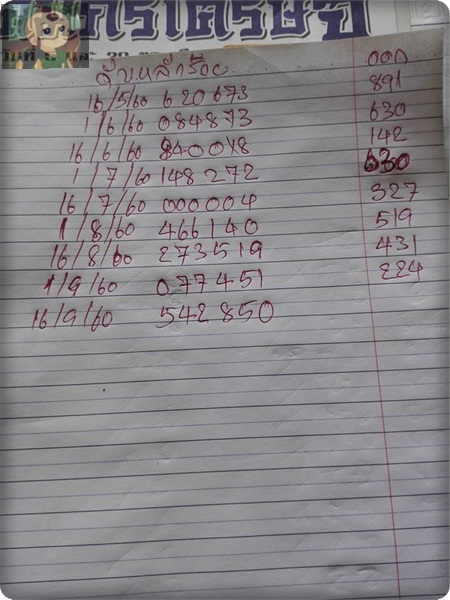 สิบหลักร้อย 000
16/5/60 620673 891
1/6/60 084873 630
16/6/60 840018 142
1/7/60 148272 630
16/7/60 000004 327
1/8/60 466140 519
16/8/60 273519 431
1/9/60 077451 224
16/9/60 542850